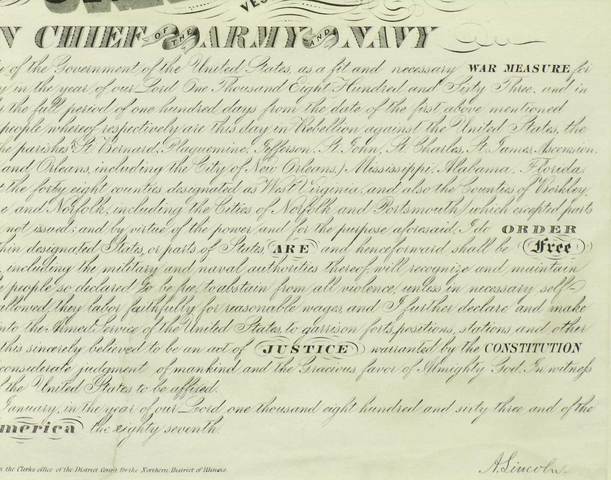 VES
N CHIEF OF THE ARMY AND NAVY
of the Government of the United States, as a fit and necessary WAR MEASURE for
y in the year of our Lord One Thousand Eight Hundred and Sixty Three, and in
the full period of one hundred days from the date of the first above mentioned
people whereof respectively are this day in Rebellion against the United States, the
he parishes St. Bernard, Plaquemine, Jefferson, St. John, St. Charles, St. James, Ascension,
and Orleans, including the City of New Orleans,) Mississippi, Alabama, Florida,
t the forty eight counties designated as West Virginia, and also the Counties of Berkley,
e and Norfolk, including the Cities of Norfolk and Portsmouth,) which excepted parts
not issued; and by virtue of the power and for the purpose aforesaid, I do ORDER
thin designated States, or parts of States, ARE and henceforward shall be Free
, including the military and naval authorities thereof, will recognize and maintain
e people so declared to be free, to abstain from all violence, unless in necessary self-
allowed, they labor faithfully for reasonable wages, and I further declare and make
into the Armed Service of the United States, to garrison forts, positions, stations and other
this sincerely believed to be an act of JUSTICE, warranted by the CONSTITUTION
considerate judgment of mankind and the Gracious favor of Almighty God. In witness
f the United States to be affixed.
January, in the year of our Lord, one thousand eight hundred and sixty three, and of the
America the eighty seventh.
n the Clerks office of the District Court for the Northern District of Illinois.
A. Lincoln.